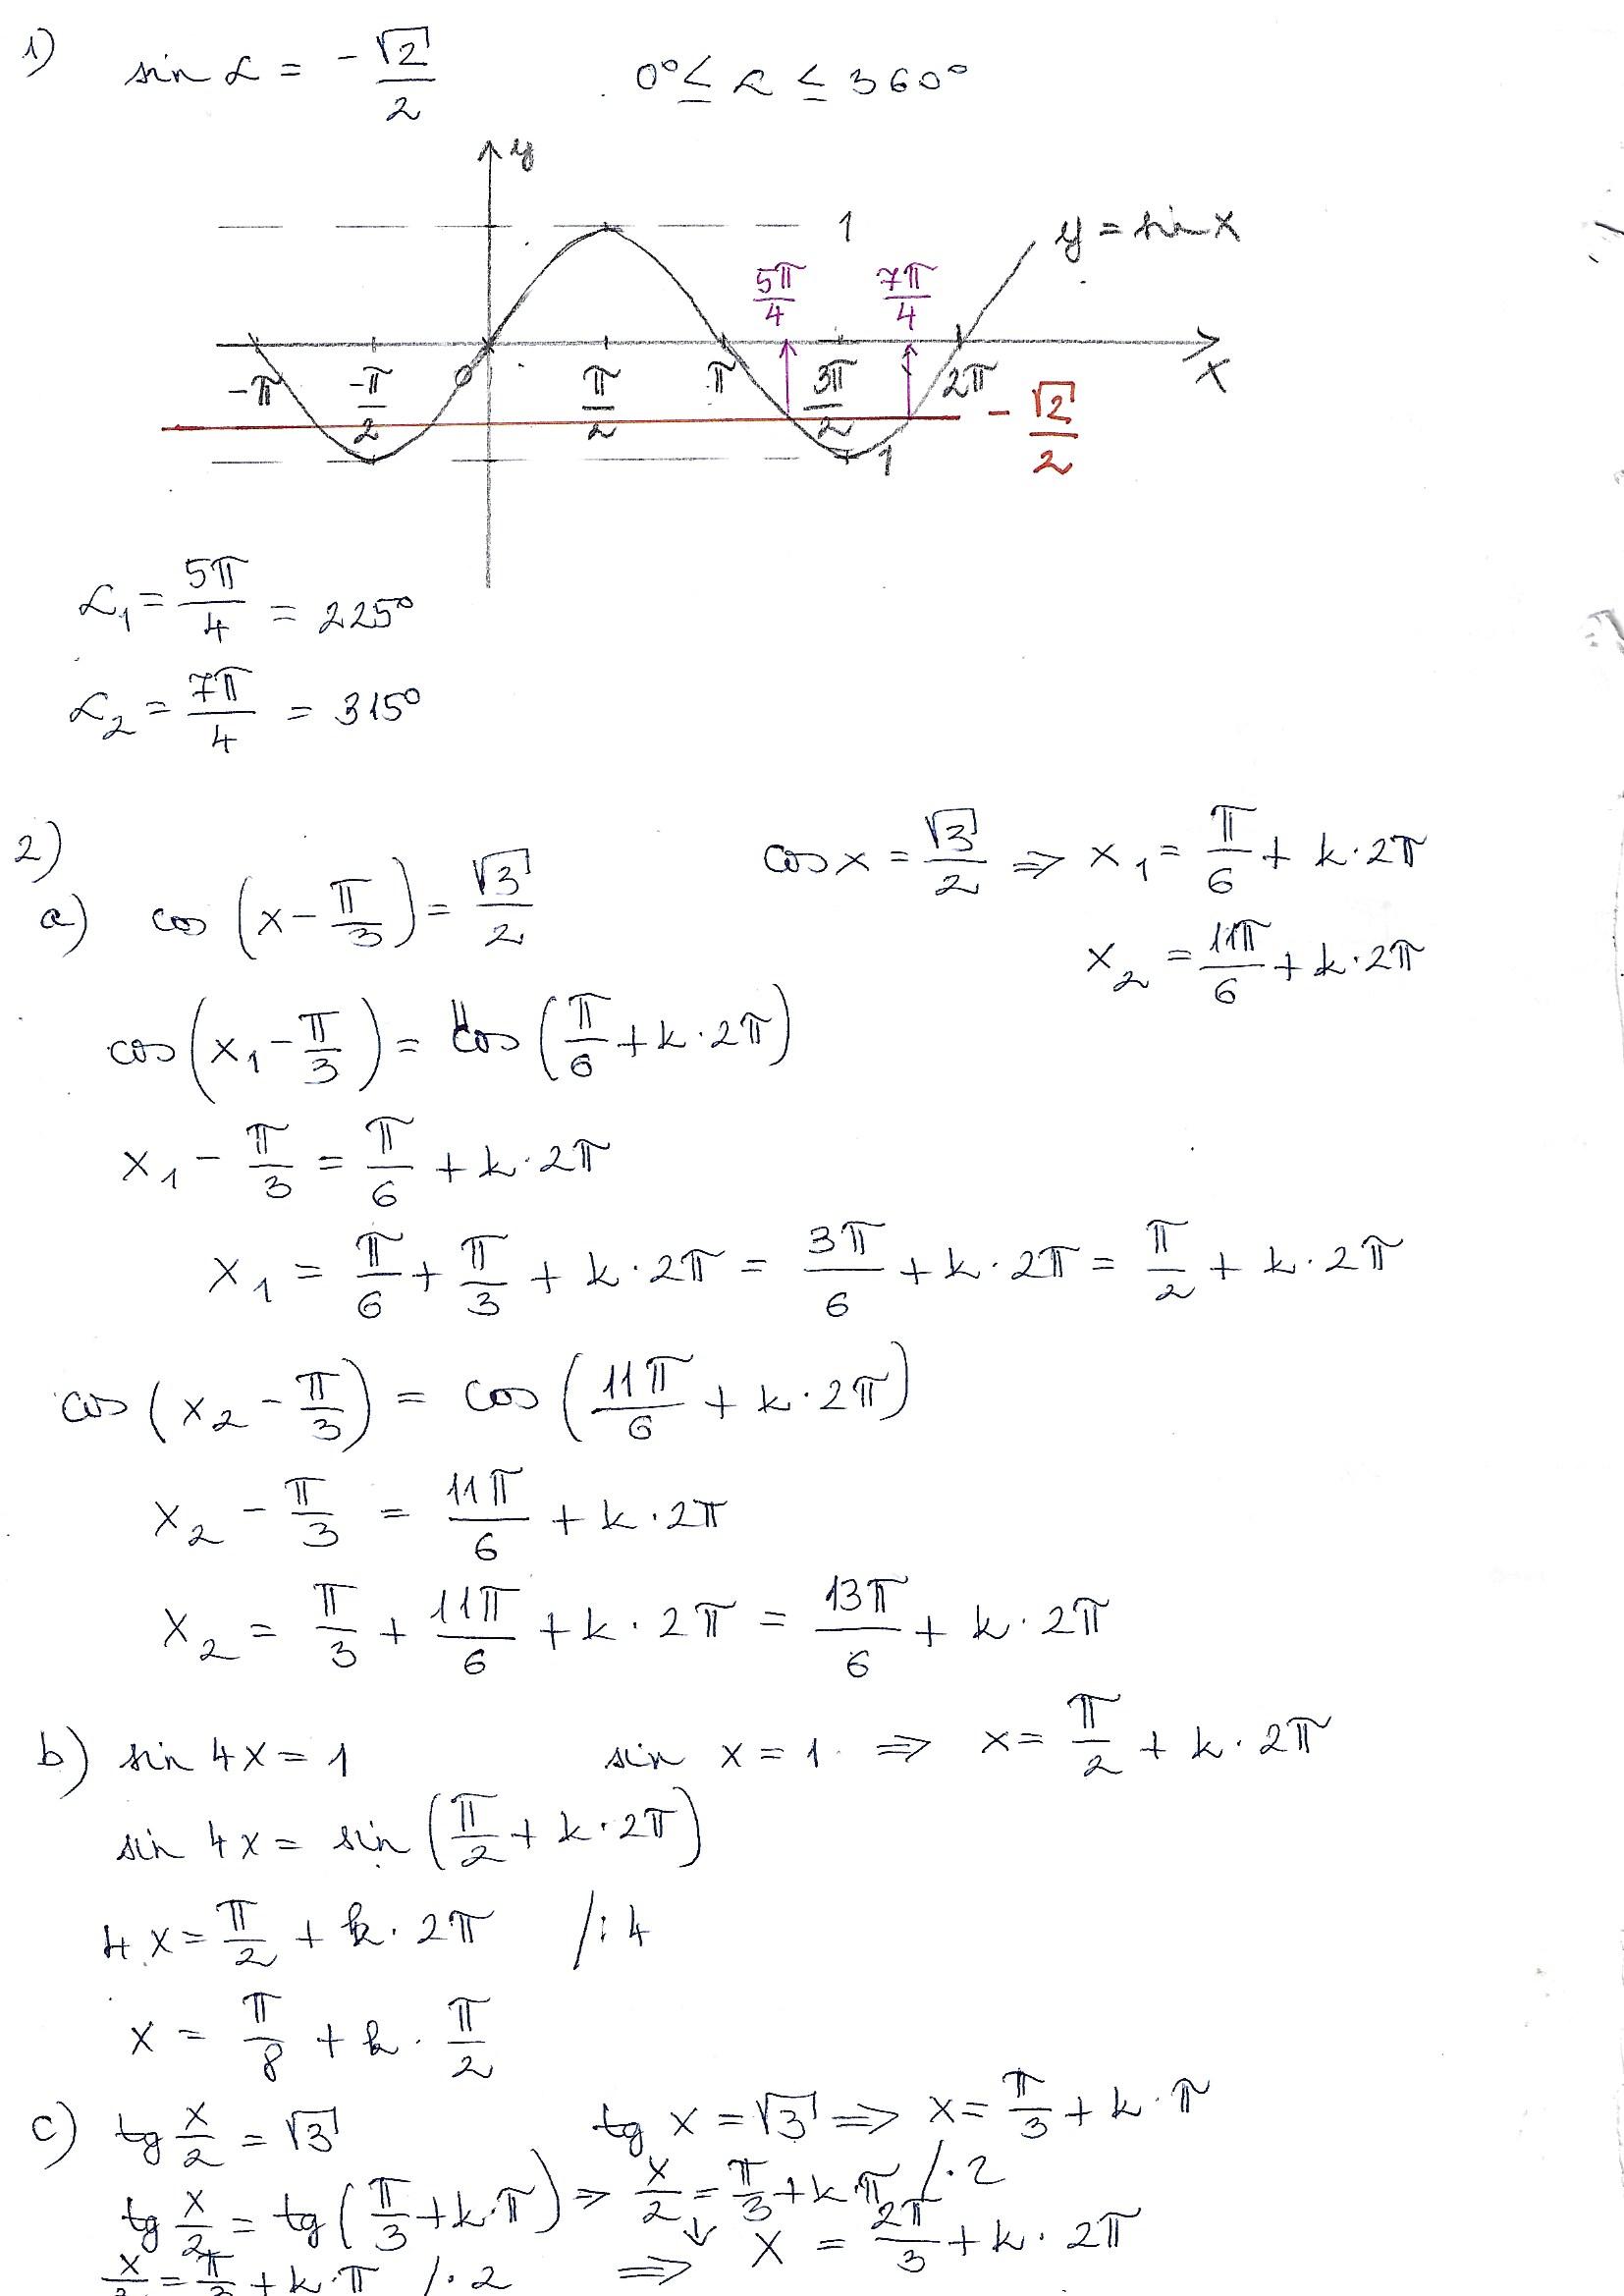 1) sin α = -√2/2 0° ≤ α ≤ 360°
y
1 y = sin x
5π/4 7π/4
-π -π/2 0 π/2 π 3π/2 2π x
-√2/2
1
α₁ = 5π/4 = 225°
α₂ = 7π/4 = 315°
2)
a) cos (x - π/3) = √3/2 cos x = √3/2 ⇒ x₁ = π/6 + k·2π
x₂ = 11π/6 + k·2π
cos (x₁ - π/3) = cos (π/6 + k·2π)
x₁ - π/3 = π/6 + k·2π
x₁ = π/6 + π/3 + k·2π = 3π/6 + k·2π = π/2 + k·2π
cos (x₂ - π/3) = cos (11π/6 + k·2π)
x₂ - π/3 = 11π/6 + k·2π
x₂ = π/3 + 11π/6 + k·2π = 13π/6 + k·2π
b) sin 4x = 1 sin x = 1 ⇒ x = π/2 + k·2π
sin 4x = sin (π/2 + k·2π)
4x = π/2 + k·2π /:4
x = π/8 + k·π/2
c) tg x/2 = √3 tg x = √3 ⇒ x = π/3 + k·π
tg x/2 = tg (π/3 + k·π) ⇒ x/2 = π/3 + k·π /·2
x/2 = π/3 + k·π /·2 ⇒ x = 2π/3 + k·2π